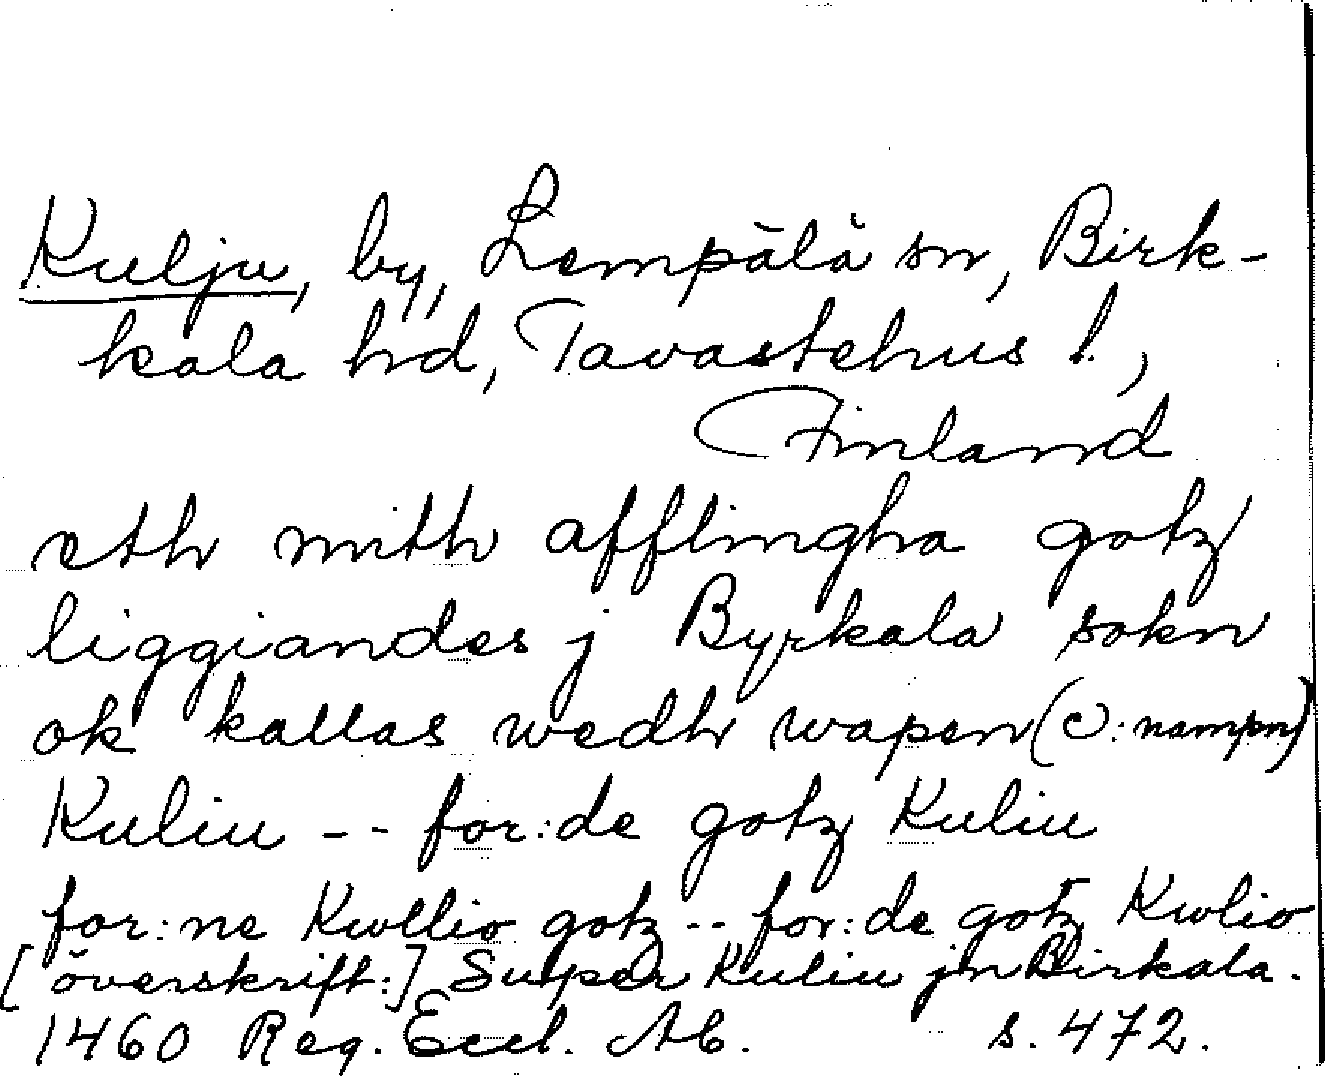 Kulju, by, Lempälä sn, Birk-
kala hd, Tavastehus l.,
Finland
eth mith afflingha gotz
liggiandes j Byrkala sokn
ok kallas wedh wapen (ɔ: nampn)
Kuliu -- for:de gotz Kuliu
for:ne Kwllio gotz -- for:de gotz Kwlio
[överskrift:] Super Kuliu jn Birkala.
1460 Reg. Eccl. Ab. s. 472.